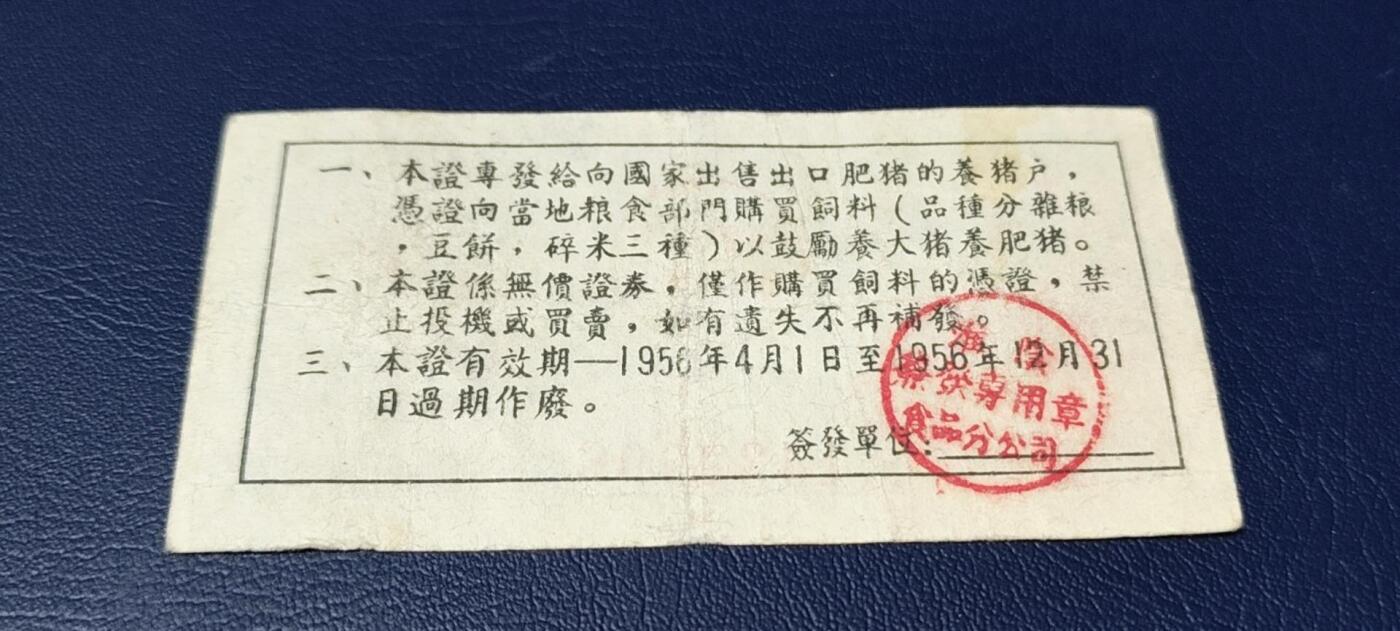 一、本證專發給向國家出售出口肥猪的養猪户，
憑證向當地粮食部門購買飼料（品種分雜粮
，豆餅，碎米三種）以鼓勵養大猪養肥猪。
二、本證係無價證券，僅作購買飼料的憑證，禁
止投機或買賣，如有遺失不再補發。
三、本證有效期—1956年4月1日至1956年12月31
日過期作廢。
簽發單位：
海
專用章
食品分公司